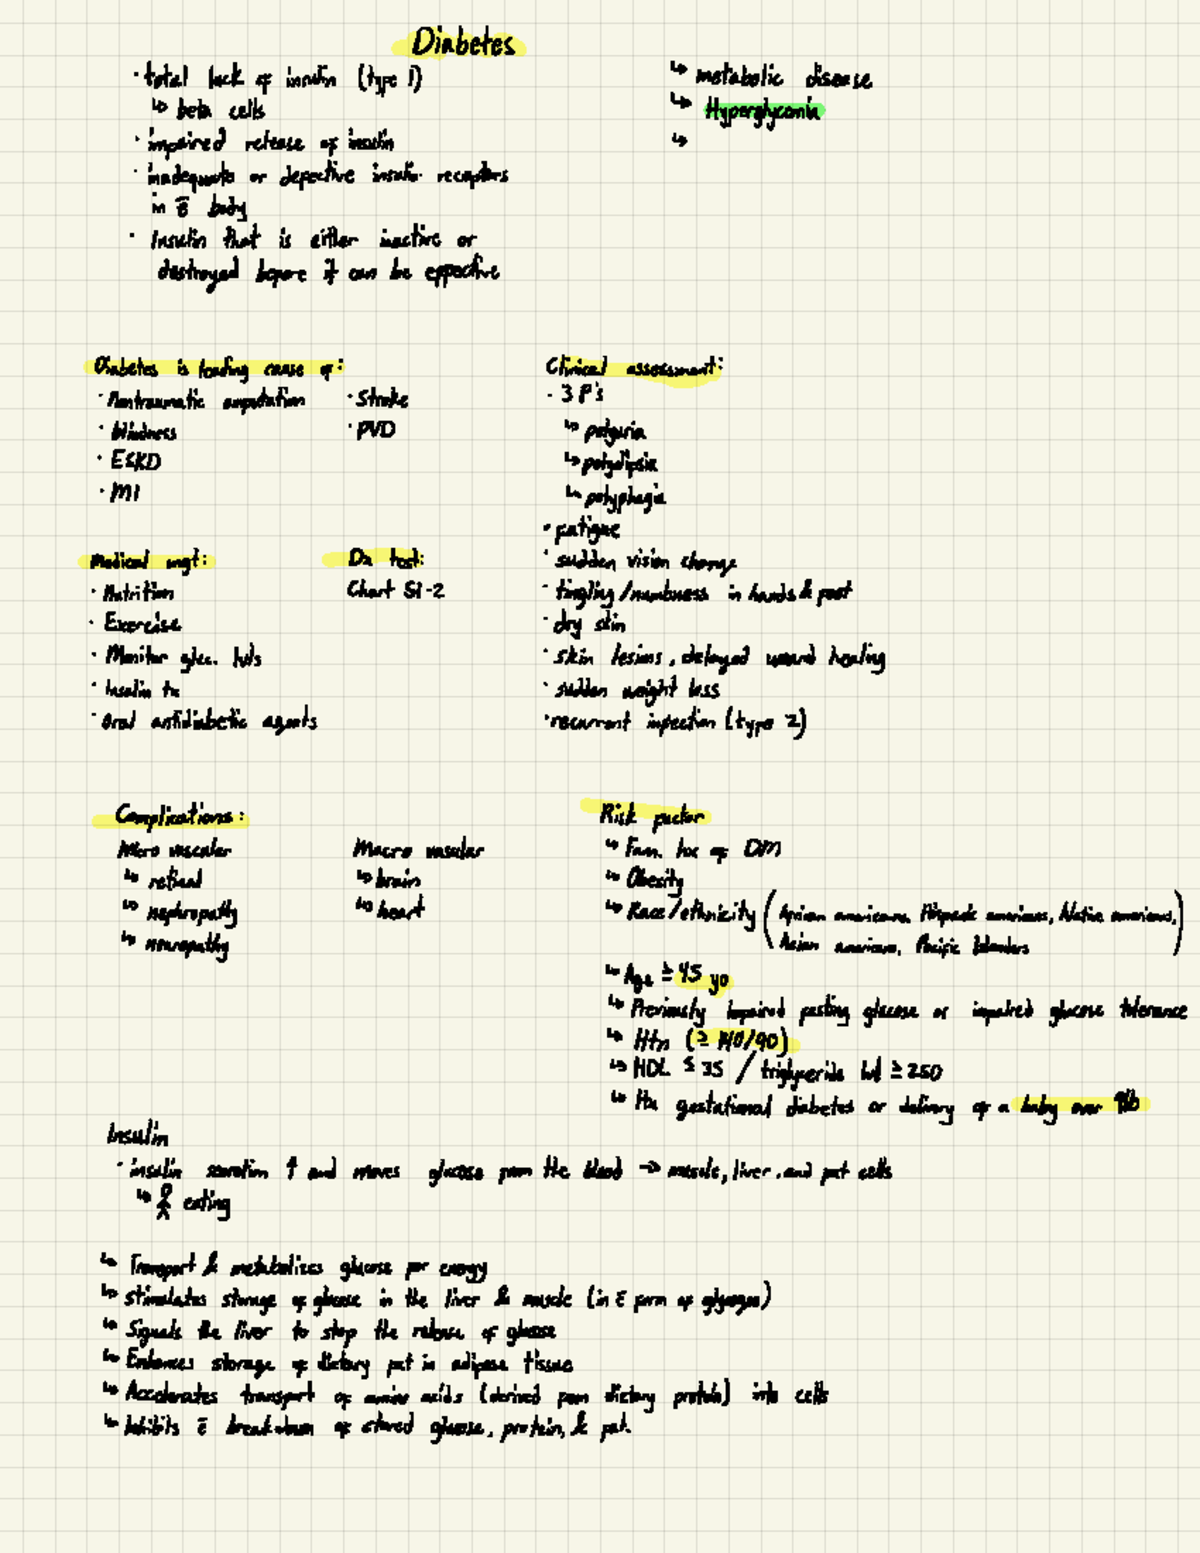 Diabetes
· total lack of insulin (type 1)
↳ beta cells
· impaired release of insulin
· inadequate or defective insulin receptors
in ē body
· Insulin that is either inactive or
destroyed before it can be effective
↳ metabolic disease
↳ Hyperglycemia
↳
Diabetes is leading cause of:
· Nontraumatic amputation
· blindness
· ESKD
· MI
· Stroke
· PVD
Clinical assessment:
· 3 P's
↳ polyuria
↳ polydipsia
↳ polyphagia
· fatigue
· sudden vision change
· tingling/numbness in hands & feet
· dry skin
· skin lesions, delayed wound healing
· sudden weight loss
· recurrent infection (type 2)
Medical mgt:
· Nutrition
· Exercise
· Monitor gluc. lvls
· Insulin tx
· Oral antidiabetic agents
Dx test:
Chart 51-2
Complications:
Micro vascular
↳ retinal
↳ nephropathy
↳ neuropathy
Macro vascular
↳ brain
↳ heart
Risk factor
↳ Fam. hx of DM
↳ Obesity
↳ Race/ethnicity (African americans, Hispanic americans, Native americans,
Asian americans, Pacific Islanders)
↳ Age ≥ 45 yo
↳ Previously impaired fasting glucose or impaired glucose tolerance
↳ Htn (≥ 140/90)
↳ HDL ≤ 35 / triglyceride lvl ≥ 250
↳ Hx gestational diabetes or delivery of a baby over 9lb
Insulin
· insulin secretion ↑ and moves glucose from the blood → muscle, liver, and fat cells
↳ eating
↳ Transport & metabolizes glucose for energy
↳ Stimulates storage of glucose in the liver & muscle (in ē form of glycogen)
↳ Signals the liver to stop the release of glucose
↳ Enhances storage of dietary fat in adipose tissue
↳ Accelerates transport of amino acids (derived from dietary protein) into cells
↳ Inhibits ē breakdown of stored glucose, protein, & fat.